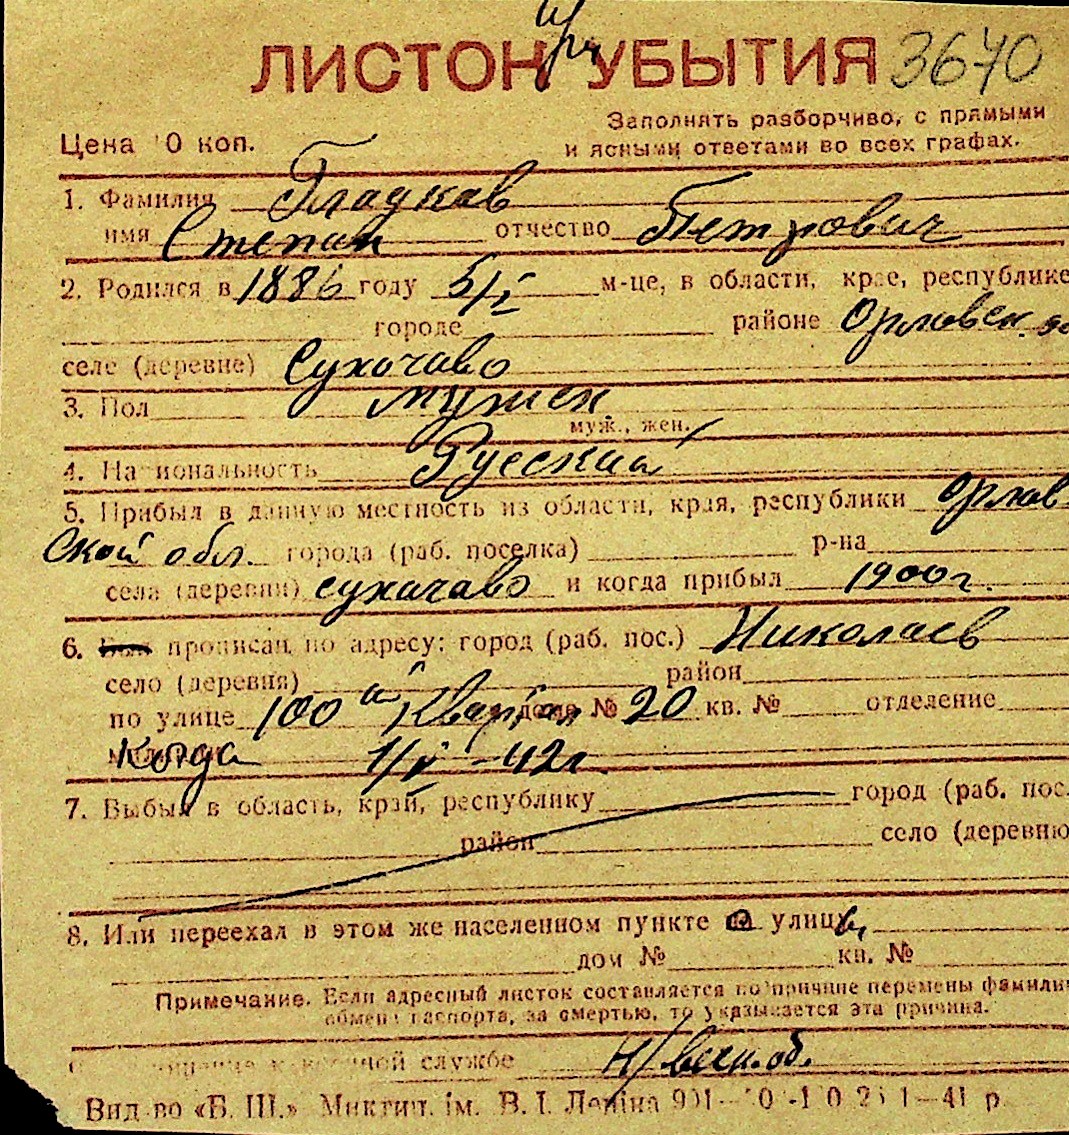 ЛИСТОК УБЫТИЯ 3670
Заполнять разборчиво, с прямыми
Цена 10 коп. и ясными ответами во всех графах.
1. Фамилия Гладков
имя Степан отчество Петрович
2. Родился в 1886 году 5/I м-це, в области, крае, республике
городе районе Орловск.
селе (деревне) Сухочаво
3. Пол мужск.
муж., жен.
4. Национальность Русский
5. Прибыл в данную местность из области, края, республики Орлов-
ской обл. города (раб. поселка) р-на
села (деревни) сухачаво и когда прибыл 1900 г.
6. прописан по адресу: город (раб. пос.) Николаев
село (деревня) район
по улице 100 ый Квартал дом № 20 кв. № отделение
Когда 1/V - 42 г.
7. Выбыл в область, край, республику город (раб. пос.
район село (деревню
8. Или переехал в этом же населенном пункте улицу
дом № кв. №
Примечание. Если адресный листок составляется по причине перемены фамилии
обмена паспорта, за смертью, то указывается эта причина.
военной службе Н/
Вид-во «Б. Ш.» Миктип. ім. В. І. Леніна 41 р.